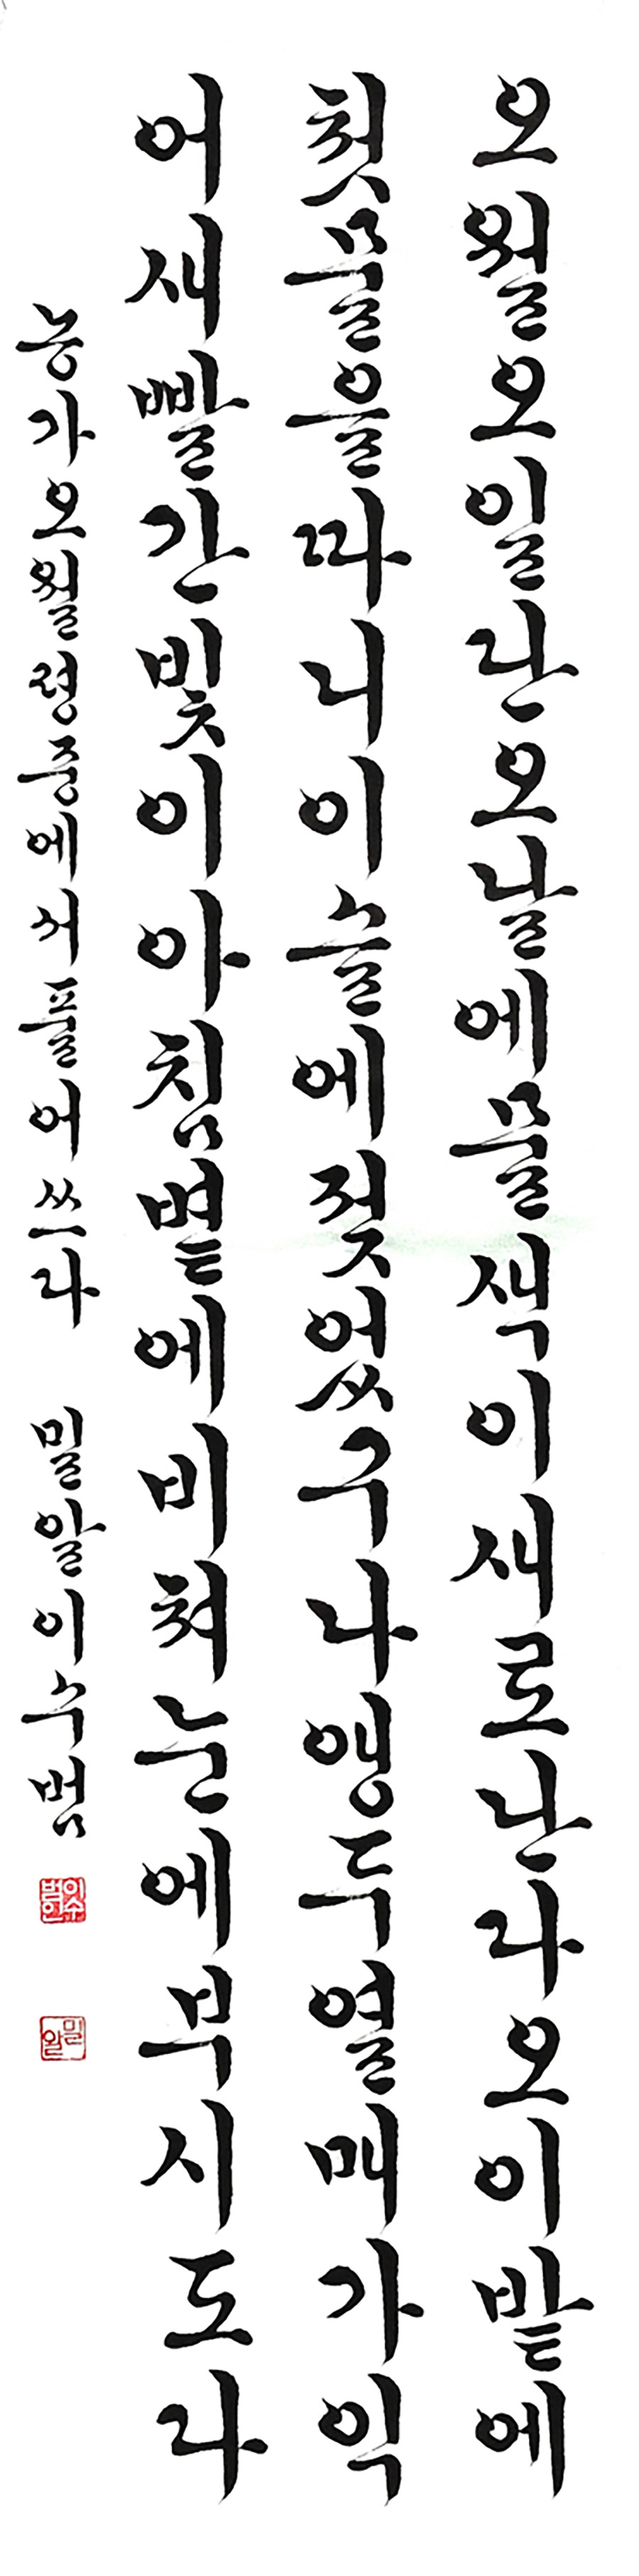 오월오일단오날에물색이새로난다오이밭에
첫물을따니이슬에젖었구나앵두열매가익
어새빨간빛이아침볕에비쳐눈에부시도다
농가오월령중에서풀어쓰다 밀알이수범
이수범인
밀알